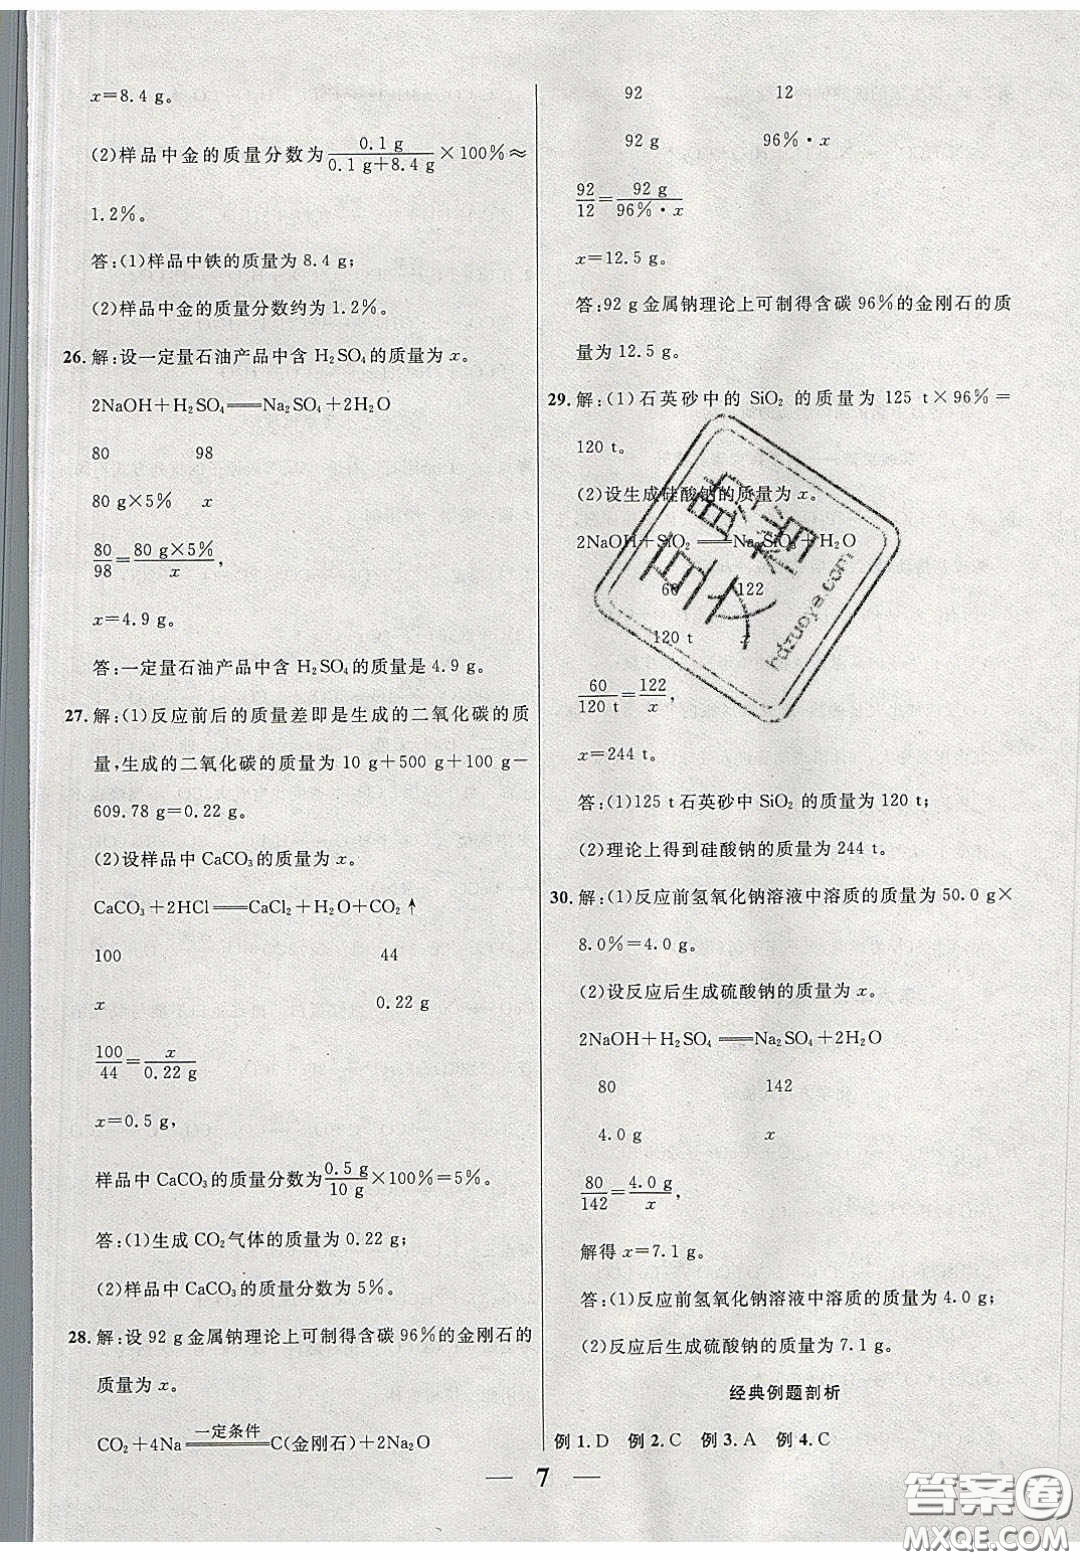 x=8.4 g。
(2)样品中金的质量分数为 0.1 g/(0.1 g+8.4 g) ×100%≈
1.2%。
答:(1)样品中铁的质量为 8.4 g;
(2)样品中金的质量分数约为 1.2%。
26. 解:设一定量石油产品中含 H₂SO₄的质量为 x。
2NaOH+H₂SO₄══Na₂SO₄+2H₂O
80 98
80 g×5% x
80/98=80 g×5%/x,
x=4.9 g。
答:一定量石油产品中含 H₂SO₄的质量是 4.9 g。
27. 解:(1)反应前后的质量差即是生成的二氧化碳的质
量,生成的二氧化碳的质量为 10 g+500 g+100 g-
609.78 g=0.22 g。
(2)设样品中 CaCO₃的质量为 x。
CaCO₃+2HCl══CaCl₂+H₂O+CO₂↑
100 44
x 0.22 g
100/44=x/0.22 g
x=0.5 g,
样品中 CaCO₃的质量分数为 0.5 g/10 g ×100%=5%。
答:(1)生成 CO₂气体的质量为 0.22 g;
(2)样品中 CaCO₃的质量分数为 5%。
28. 解:设 92 g 金属钠理论上可制得含碳 96%的金刚石的
质量为 x。
CO₂+4Na ══一定条件══ C(金刚石)+2Na₂O
92 12
92 g 96%·x
92/12=92 g/(96%·x)
x=12.5 g。
答:92 g 金属钠理论上可制得含碳 96%的金刚石的质
量为 12.5 g。
29. 解:(1)石英砂中的 SiO₂ 的质量为 125 t×96%=
120 t。
(2)设生成硅酸钠的质量为 x。
2NaOH+SiO₂══Na₂SiO₃+H₂O
60 122
120 t x
60/120 t=122/x,
x=244 t。
答:(1)125 t 石英砂中 SiO₂ 的质量为 120 t;
(2)理论上得到硅酸钠的质量为 244 t。
30. 解:(1)反应前氢氧化钠溶液中溶质的质量为 50.0 g×
8.0%=4.0 g。
(2)设反应后生成硫酸钠的质量为 x。
2NaOH+H₂SO₄══Na₂SO₄+2H₂O
80 142
4.0 g x
80/142=4.0 g/x,
解得 x=7.1 g。
答:(1)反应前氢氧化钠溶液中溶质的质量为 4.0 g;
(2)反应后生成硫酸钠的质量为 7.1 g。
经典例题剖析
例 1. D 例 2. C 例 3. A 例 4. C
7
hdzuoye.com
答案圈
MXQE.COM